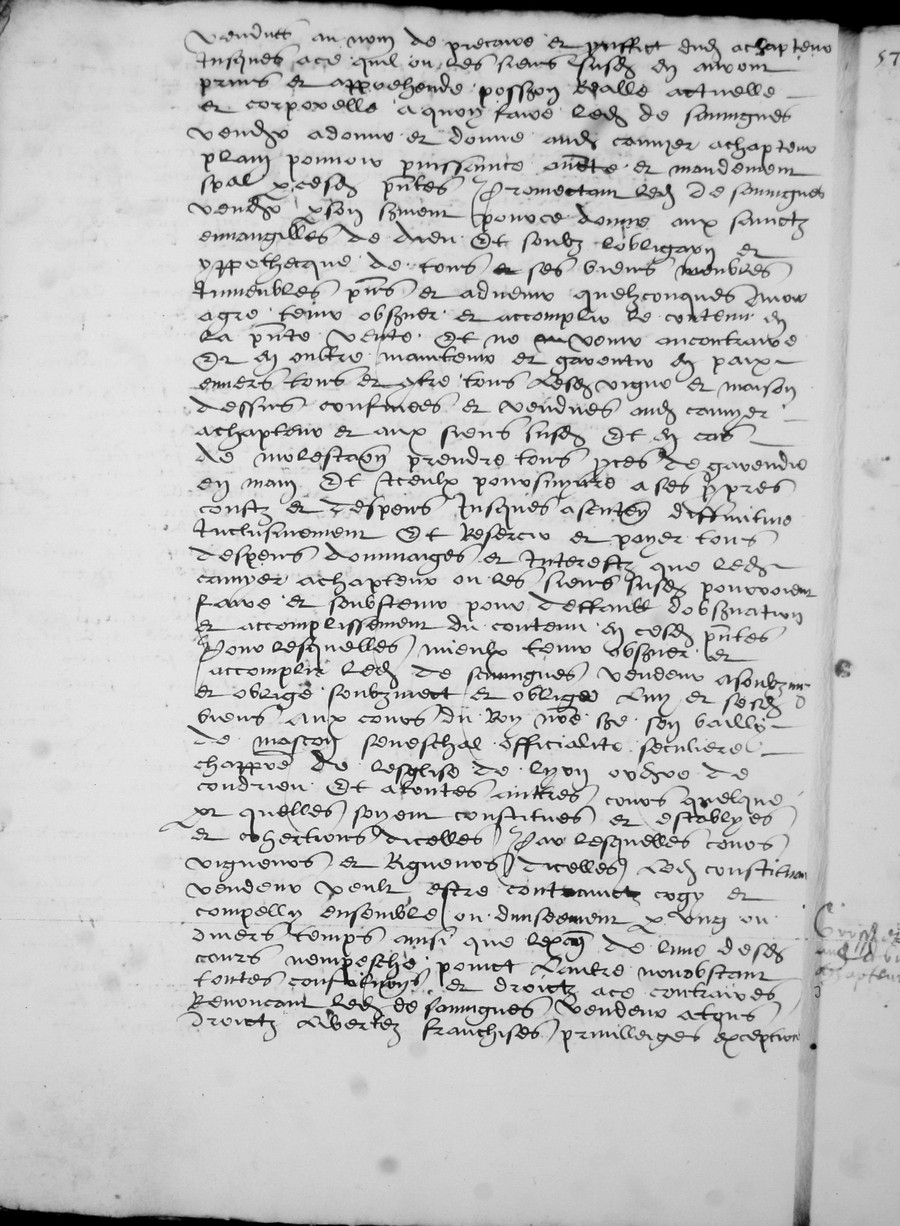 vendues au nom de precaire et prouffit dud achapteur
Jusques ace quil ou les siens susd en auront
prins et apprehende possion Realle actuelle
et corporelle a quoy faire led de sauuignes
vendr a donne et donne aud achapteur
plain pouuoir puissance aucte et mandement
spal p cesd pntes Promectant led de sauuignes
vendr p son serment pource donne aux sainctz
euuangilles de dieu Et soubz lobligaon et
yppothecque de tous et ses biens meubles
Immeubles pns et aduenir quelzconques auoir
agre tenir obseruer et accomplir le contenu en
la pnte vente Et ne venir aucontraire
Et en oultre maintenir et garentir en paix
enuers tous et contre tous lesd vigne et maison
dessus confinees et vendues aud
achapteur et aux siens susd Et en cas
de molestaon prendre tous pces de garendie
en main Et Iceulx poursuyure a ses ppres
coustz et despens Jusques a sentence diffinitiue
Inclusiuement Et Reffercir et payer tous
despens dommaiges et Interestz que led
achapteur ou les siens susd pourroient
faire et soubstenir pour deffault dobseruation
et accomplissement du contenu en cesd pntes
Pour lesquelles mieulx tenir obseruer et
accomplir led de sauuignes vendeur a soubzmis
et oblige soubzmect et oblige luy et sesd
biens aux cours du Roy nre sre son bailly
de mascon seneschal officialite seculiere
chappre de lesglise de lyon de
condrieu Et a toutes aultres cours quelque
et quelles soyent constitues et establyes
et cohertions dicelles Par lesquelles cours
vigueurs et Rigueurs dicelles led constituant
vendeur veult estre contrainct et
compelly ensemble ou diuisement p vng ou
diuers temps ainsi que lexon de lune desd
cours nempesche poinct laultre nonobstant
toutes constitutions et droictz ace contraires
Renoncant led de sauuignes vendeur atous
droictz libertez franchises priuilleiges exception
57